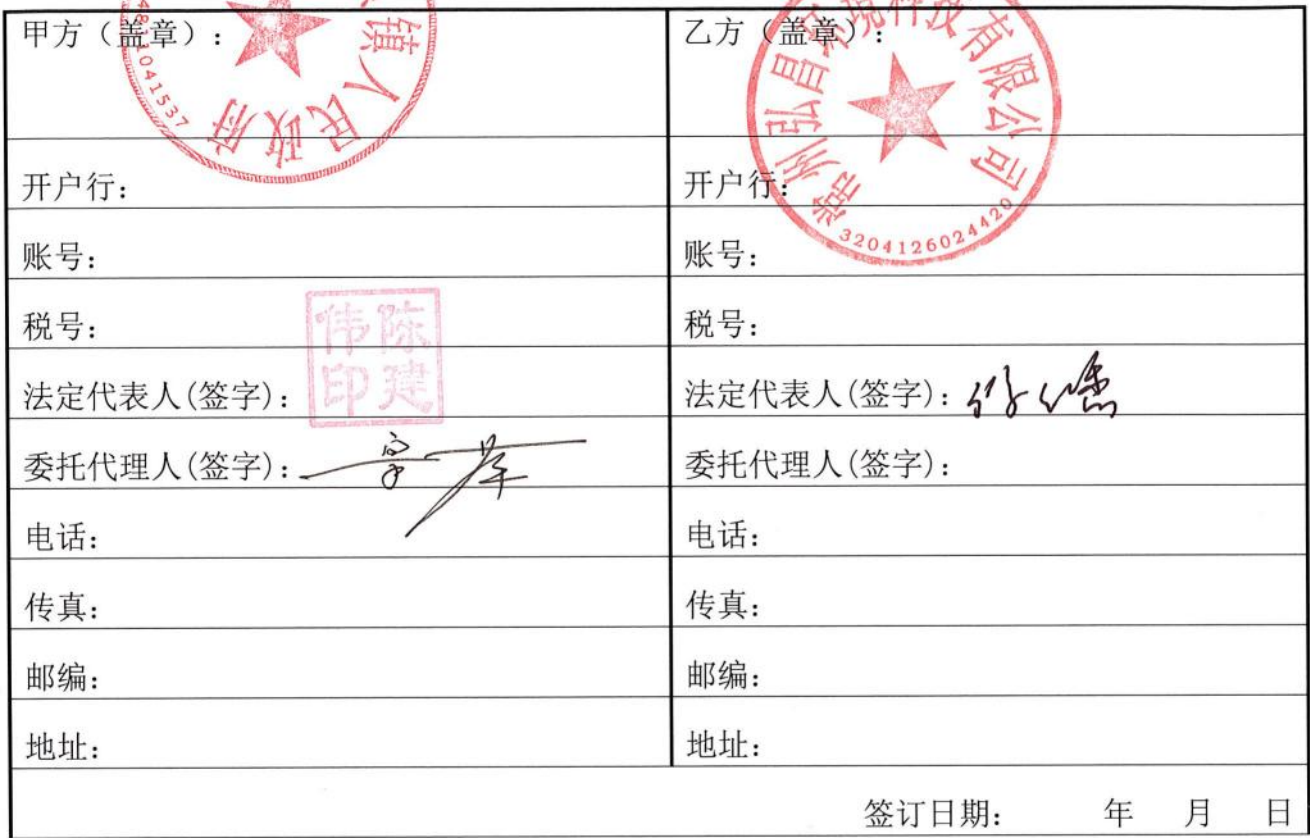 甲方（盖章）：
镇人民政府
481041537
乙方（盖章）：
常州弘昌环境科技有限公司
3204126024420
开户行：
开户行：
账号：
账号：
税号：
税号：
陈建伟印
法定代表人(签字)：
法定代表人(签字)：
委托代理人(签字)：
委托代理人(签字)：
电话：
电话：
传真：
传真：
邮编：
邮编：
地址：
地址：
签订日期： 年 月 日